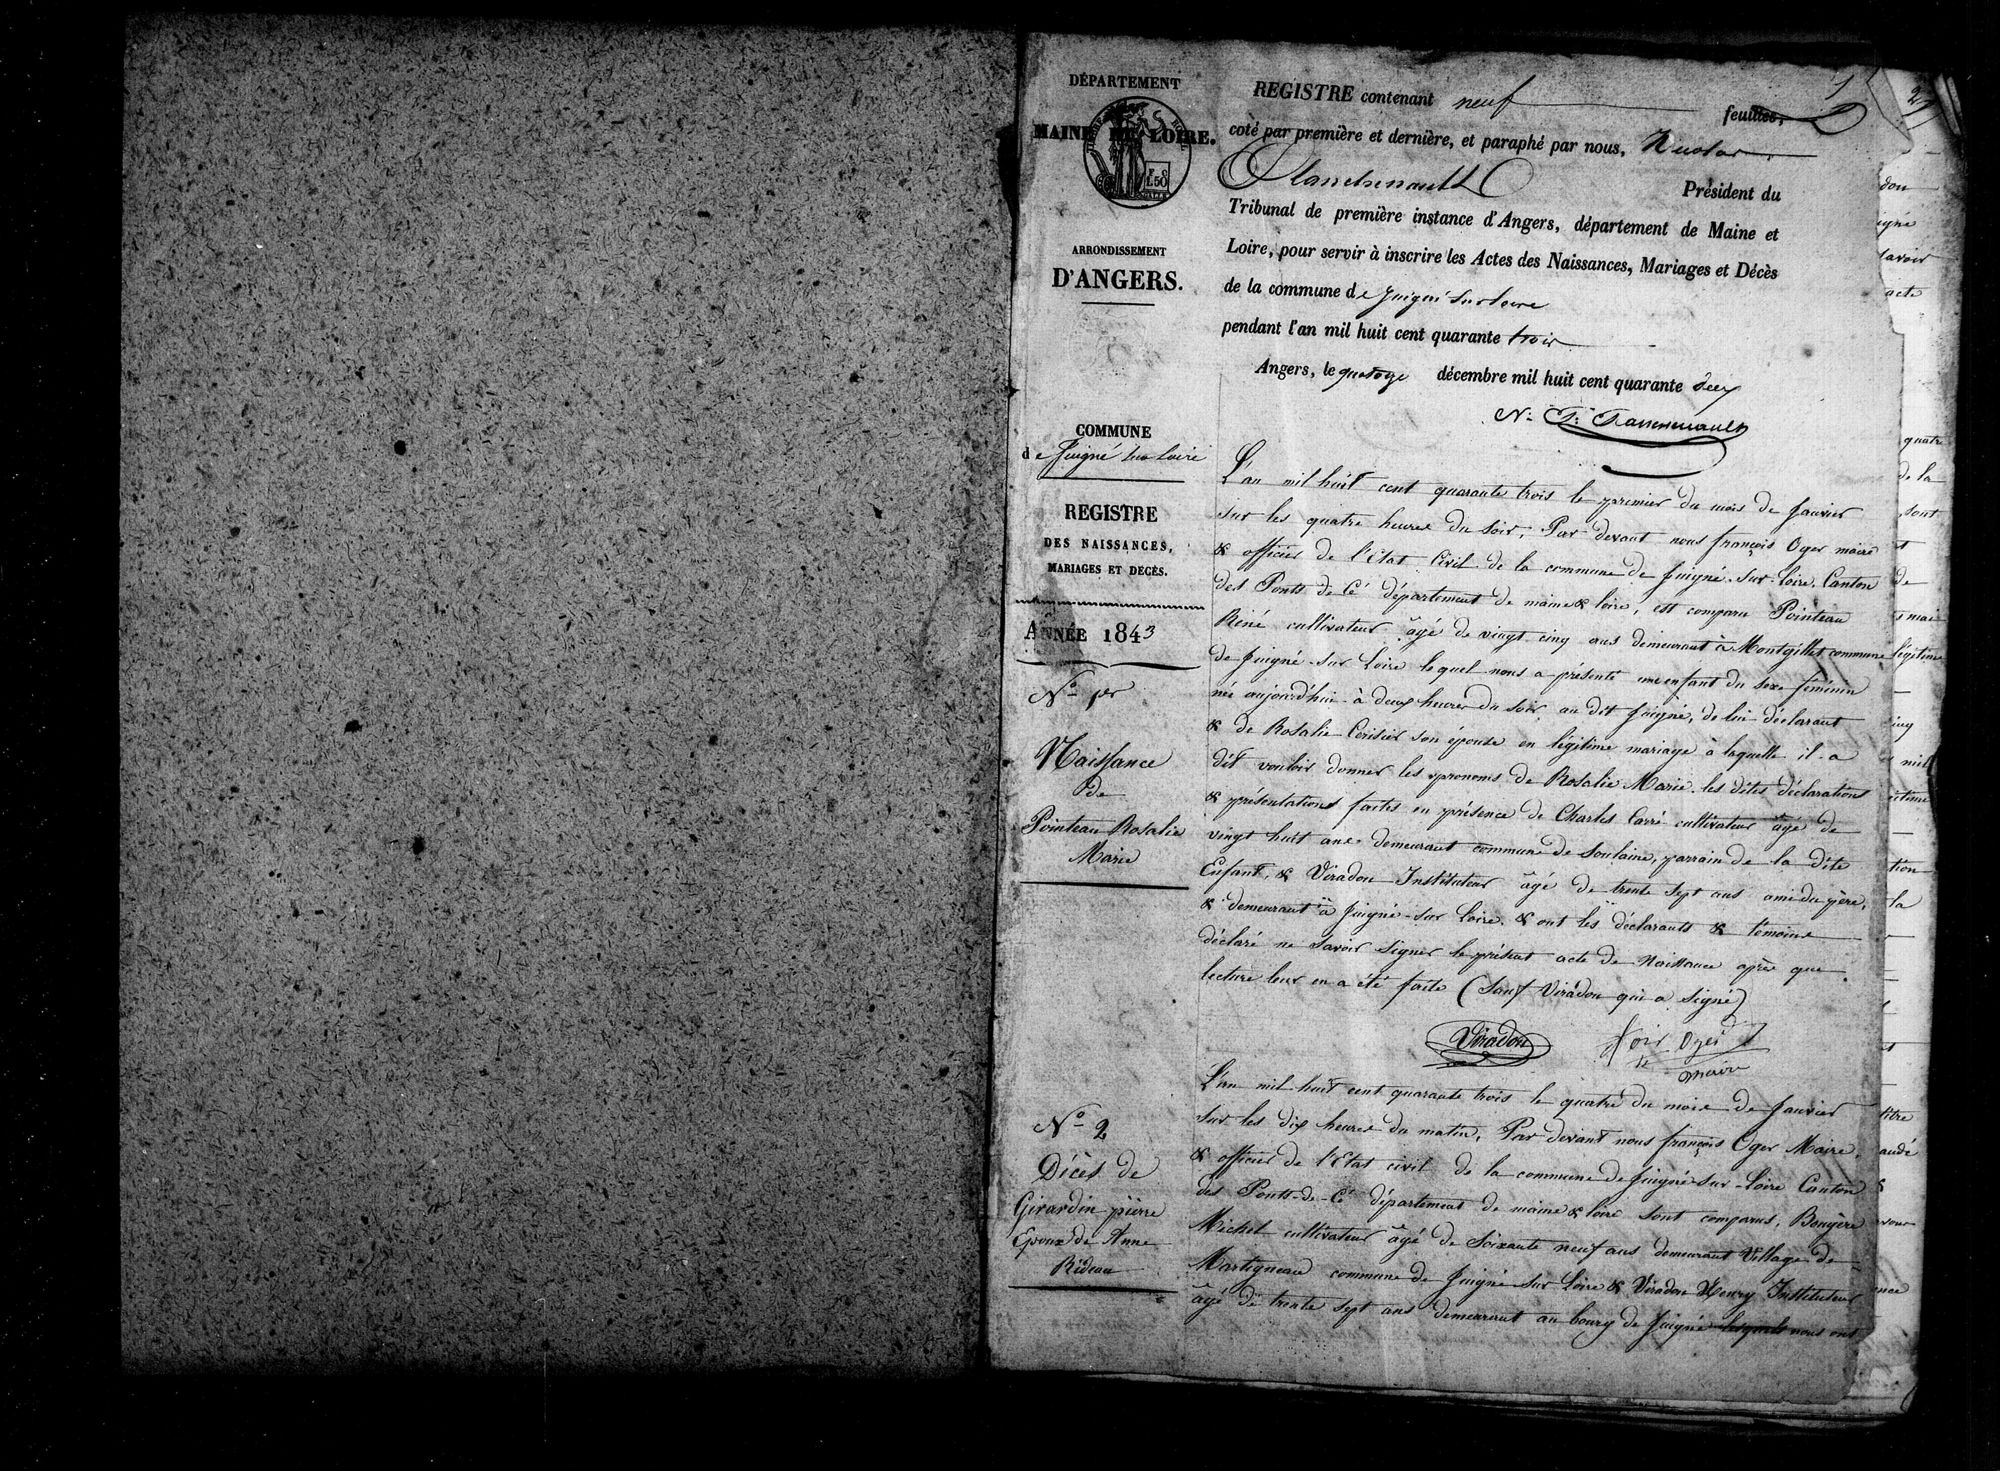 DÉPARTEMENT
MAINE DE LOIRE.
ARRONDISSEMENT
D'ANGERS.
COMMUNE
de Juigné sur Loire
REGISTRE
DES NAISSANCES,
MARIAGES ET DECÈS.
ANNÉE 1843
REGISTRE contenant neuf feuilles,
coté par première et dernière, et paraphé par nous,
Président du
Tribunal de première instance d'Angers, département de Maine et
Loire, pour servir à inscrire les Actes des Naissances, Mariages et Décès
de la commune de Juigné sur Loire
pendant l'an mil huit cent quarante trois
Angers, le quatorze décembre mil huit cent quarante deux
No 1er
Naissance
de
Pointeau Rosalie
Marie
L'an mil huit cent quarante trois le premier du mois de Janvier
sur les quatre heures du soir, Par devant nous françois Oger maire
& officier de l'Etat Civil de la commune de Juigné-sur-Loire, Canton
des Ponts de Cé département de maine & loire, est comparu Pointeau
Réné cultivateur âgé de vingt cinq ans demeurant à Montgillet commune
de Juigné-sur Loire lequel nous a présenté une enfant du sexe féminin
née aujourd'hui à deux heures du soir au dit Juigné, de lui déclarant
& de Rosalie Cerisier son épouse en légitime mariage à laquelle il a
dit vouloir donner les prenoms de Rosalie Marie. les dites déclarations
& présentations faites en présence de Charles Carré cultivateur âgé de
vingt huit ans demeurant commune de Soulaine, parrain de la dite
Enfant, & Viradou Instituteur âgé de trente sept ans ami du père,
& demeurant à Juigné-sur Loire. & ont les déclarants & témoins
déclaré ne savoir signer le présent acte de Naissance après que
lecture leur en a été faite (Sauf Viradou qui a signé)
Viradou
Oger
maire
No 2
Décès de
Girardin pierre
Epoux de Anne
Rideau
L'an mil huit cent quarante trois le quatre du mois de Janvier
sur les dix heures du matin, Par devant nous françois Oger Maire,
& officier de l'Etat civil de la commune de Juigné-sur-Loire Canton
des Ponts-de-Cé département de maine & loire sont comparus, Bougère
Michel cultivateur âgé de soixante neuf ans demeurant Village de
Martigneau commune de Juigné sur Loire & Viradou Henry Instituteur
âgé de trente sept ans demeurant au bourg de Juigné lesquels nous ont